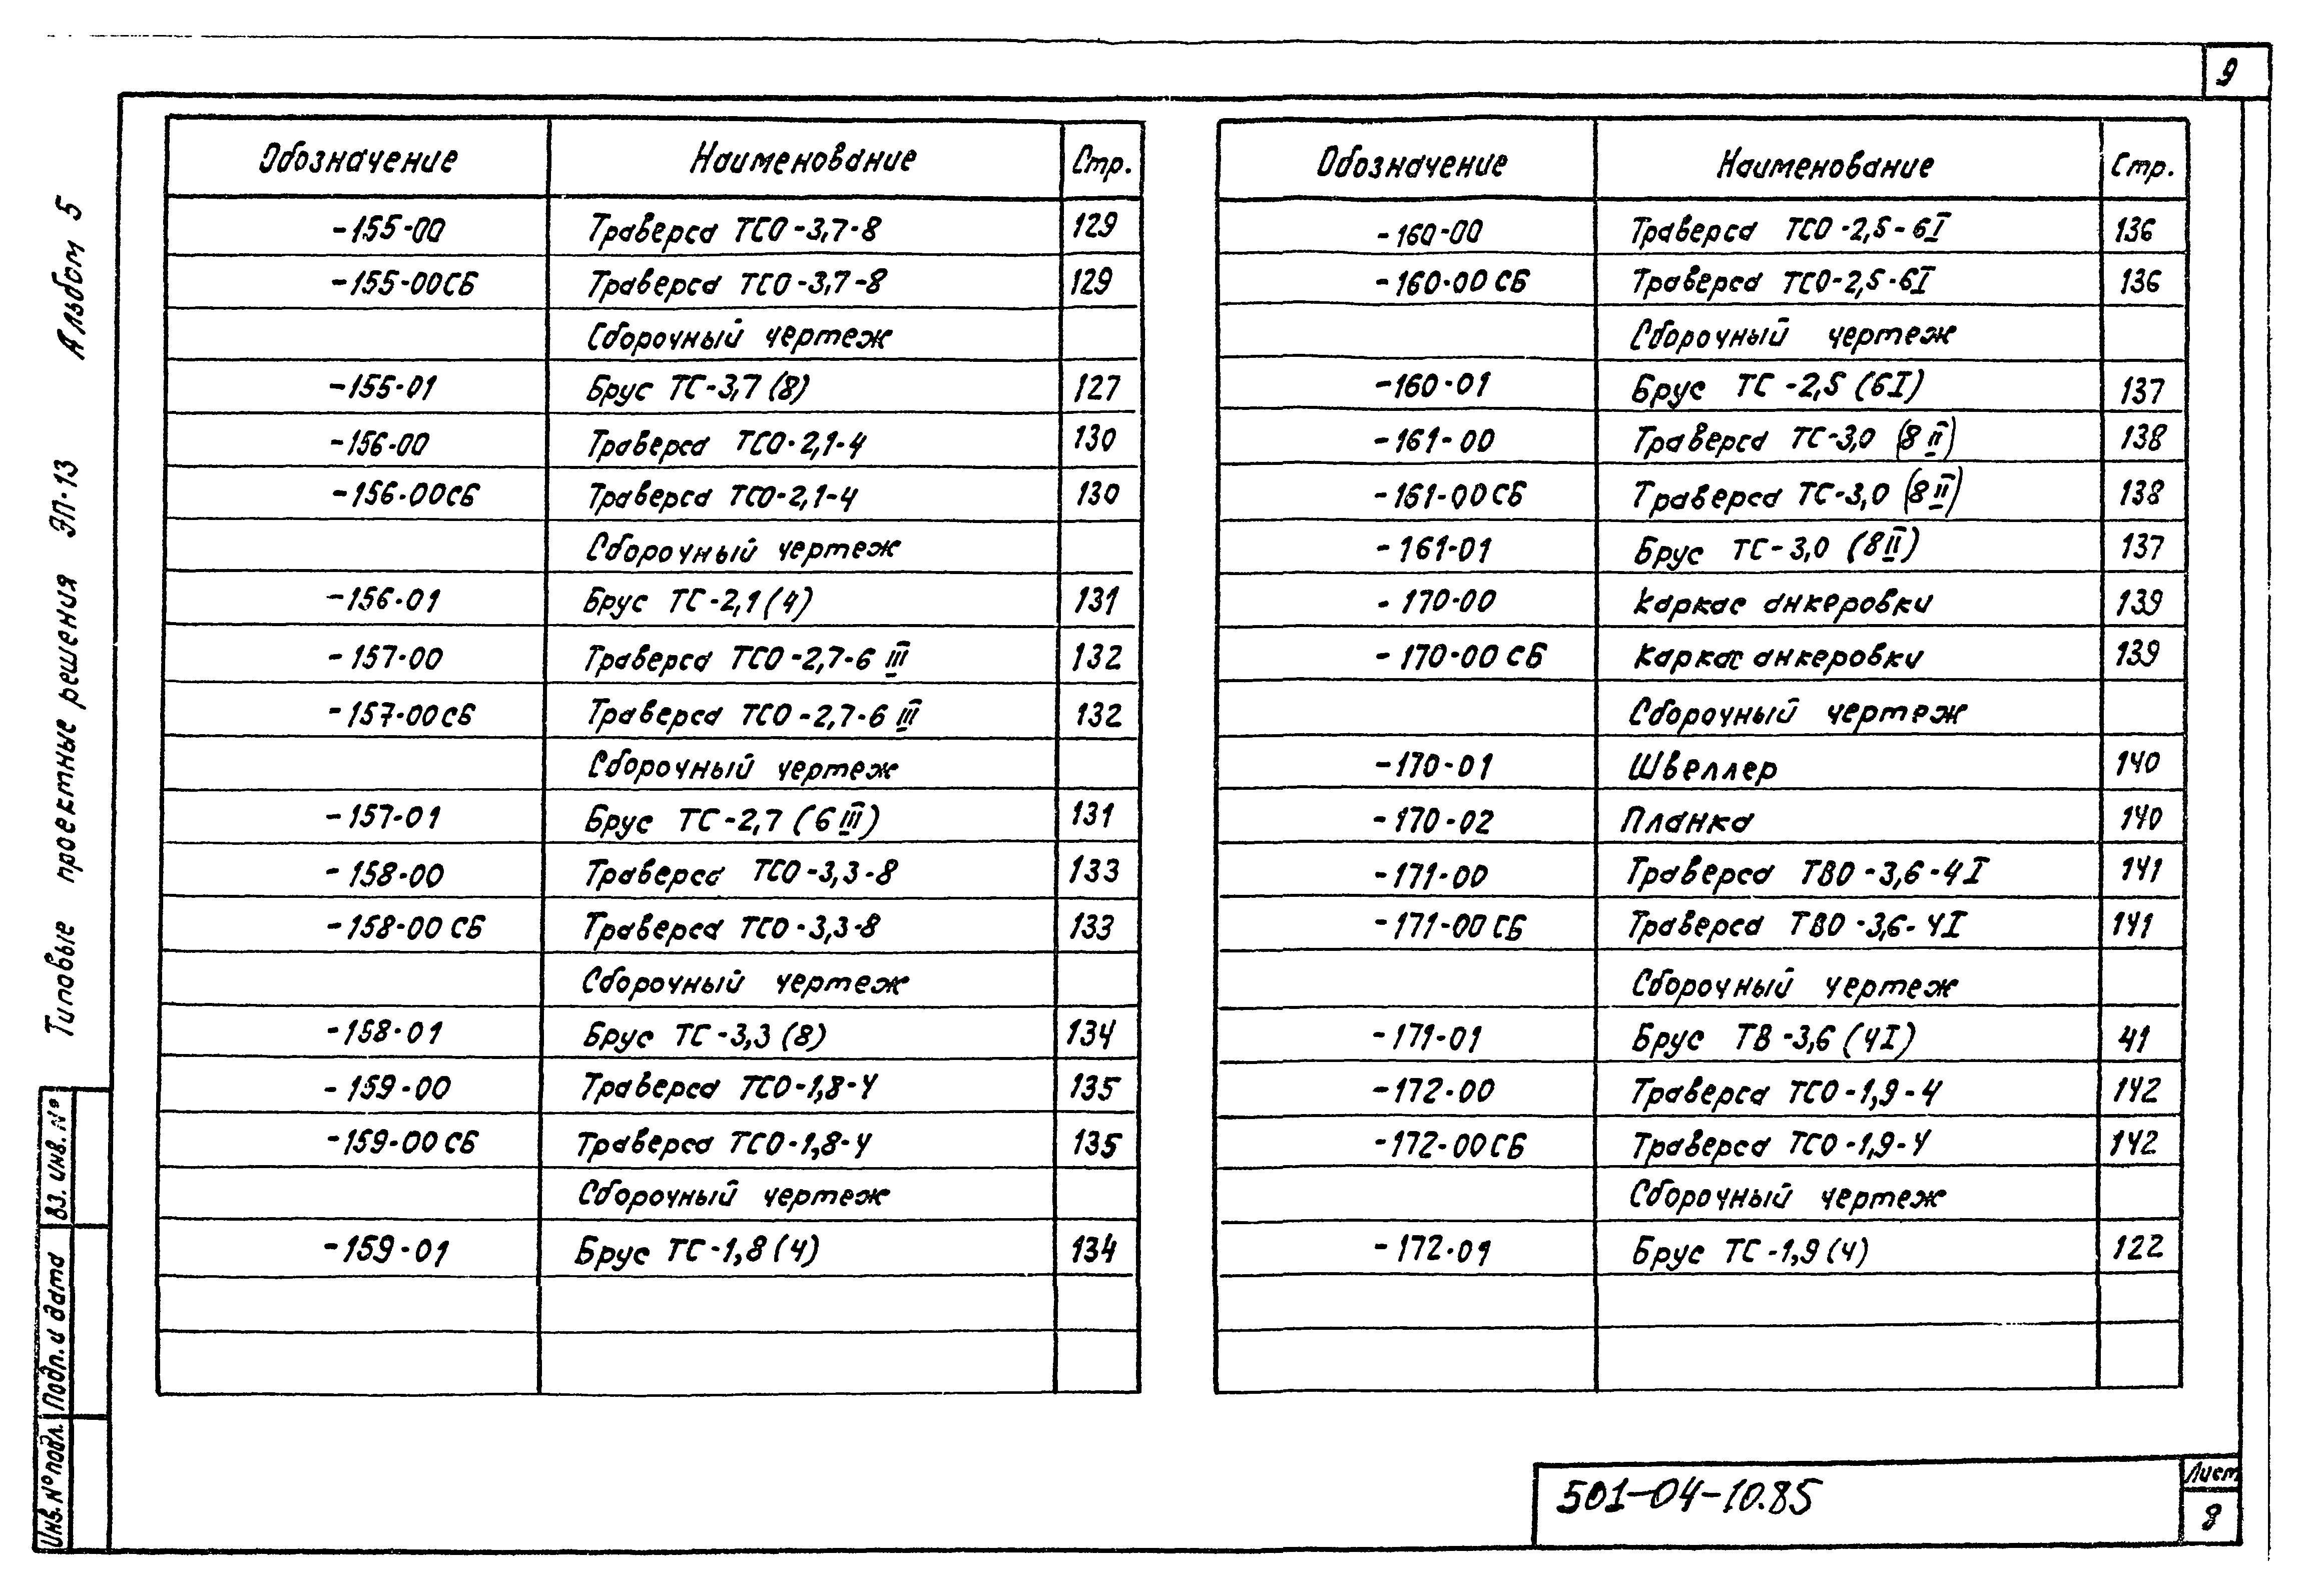 9
Обозначение Наименование Стр.
-155-00 Траверса ТСО-3,7-8 129
-155-00СБ Траверса ТСО-3,7-8 129
Сборочный чертеж
-155-01 Брус ТС-3,7 (8) 127
-156-00 Траверса ТСО-2,1-4 130
-156-00СБ Траверса ТСО-2,1-4 130
Сборочный чертеж
-156-01 Брус ТС-2,1 (4) 131
-157-00 Траверса ТСО-2,7-6 III 132
-157-00СБ Траверса ТСО-2,7-6 III 132
Сборочный чертеж
-157-01 Брус ТС-2,7 (6 III) 131
-158-00 Траверса ТСО-3,3-8 133
-158-00 СБ Траверса ТСО-3,3-8 133
Сборочный чертеж
-158-01 Брус ТС-3,3 (8) 134
-159-00 Траверса ТСО-1,8-4 135
-159-00 СБ Траверса ТСО-1,8-4 135
Сборочный чертеж
-159-01 Брус ТС-1,8 (4) 134
Обозначение Наименование Стр.
-160-00 Траверса ТСО-2,5-6I 136
-160-00 СБ Траверса ТСО-2,5-6I 136
Сборочный чертеж
-160-01 Брус ТС-2,5 (6I) 137
-161-00 Траверса ТС-3,0 (8 II) 138
-161-00СБ Траверса ТС-3,0 (8 II) 138
-161-01 Брус ТС-3,0 (8II) 137
-170-00 Каркас анкеровки 139
-170-00 СБ Каркас анкеровки 139
Сборочный чертеж
-170-01 Швеллер 140
-170-02 Планка 140
-171-00 Траверса ТВО-3,6-4I 141
-171-00 СБ Траверса ТВО-3,6-4I 141
Сборочный чертеж
-171-01 Брус ТВ-3,6 (4I) 41
-172-00 Траверса ТСО-1,9-4 142
-172-00СБ Траверса ТСО-1,9-4 142
Сборочный чертеж
-172-01 Брус ТС-1,9 (4) 122
Типовые проектные решения ЭП-13 Альбом 5
Инв. № подл. Подп. и дата Вз. инв. №
501-04-10.85
Лист
8